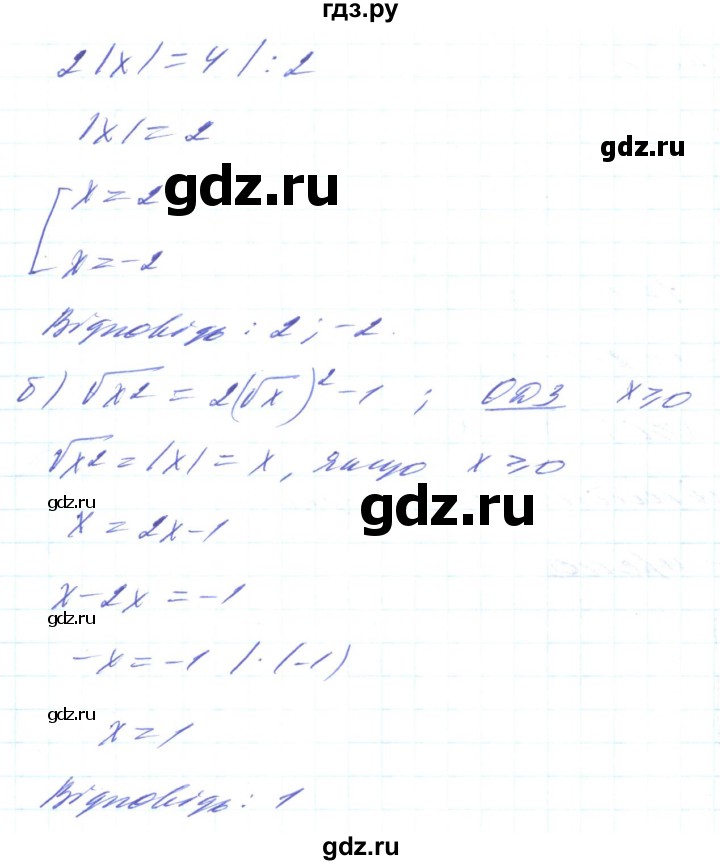 гдз.ру
2|x| = 4 | : 2
|x| = 2
gdz.ru
x = 2
gdz.ru
x = -2
Відповідь : 2 ; -2.
б) √x2 = 2(√x)² - 1 ; ОДЗ x ≥ 0
√x2 = |x| = x, якщо x ≥ 0
gdz.ru
gdz.ru
x = 2x - 1
x - 2x = -1
gdz.ru
-x = -1 | · (-1)
gdz.ru
x = 1
Відповідь : 1
gdz.ru